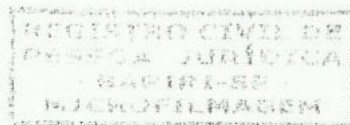 REGISTRO CIVIL DE
PESSOA JURÍDICA
MICROFILMAGEM